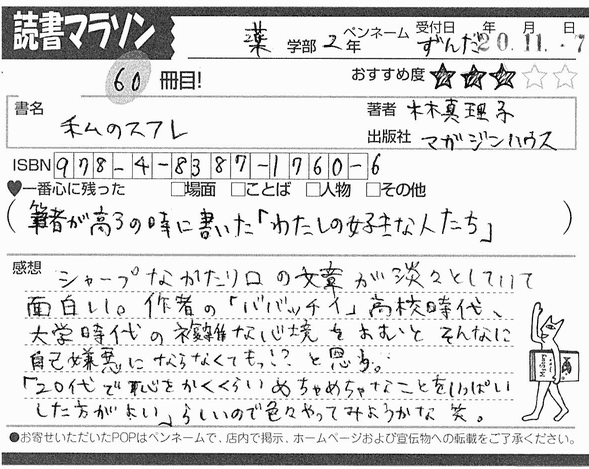 読書マラソン
薬 学部 2 年 ペンネーム ずんだ 受付日 年 月 日 20.11.-7
60 冊目! おすすめ度 ★★★☆☆
書名 私のスフレ
著者 林真理子
出版社 マガジンハウス
ISBN 978-4-8387-1760-6
♥一番心に残った □場面 □ことば □人物 □その他
(筆者が高3の時に書いた「わたしの好きな人たち」)
感想
シャープなかたり口の文章が淡々としていて
面白い。作者の「ババッチイ」高校時代、
大学時代の複雑な心境をよむと そんなに
自己嫌悪にならなくてもっ!? と思う。
「20代で恥をかくくらいめちゃめちゃなことをいっぱい
した方がよい」らしいので色々やってみようかな 笑。
●お寄せいただいたPOPはペンネームで、店内で掲示、ホームページおよび宣伝物への転載をご了承ください。